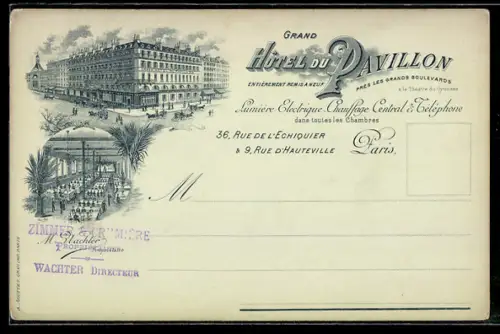 GRAND
HÔTEL DU PAVILLON
ENTIÈREMENT REMIS À NEUF
PRÈS LES GRANDS BOULEVARDS
& le Théâtre du Gymnase
Lumière Electrique, Chauffage Central & Téléphone
dans toutes les Chambres
36, RUE DE L'ECHIQUIER
& 9, RUE D'HAUTEVILLE
Paris,
M
ZIMMER &
M. Wachter
PROPRIETAIRES
WACHTER DIRECTEUR